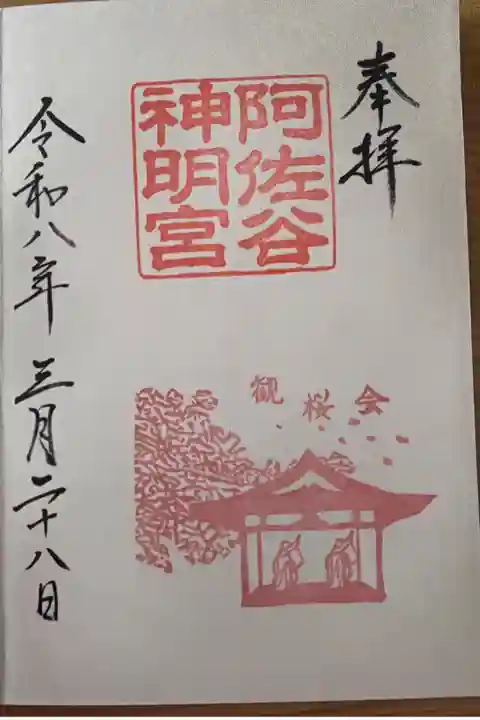 奉拝
阿佐谷
神明宮
観桜会
令和八年 三月二十八日